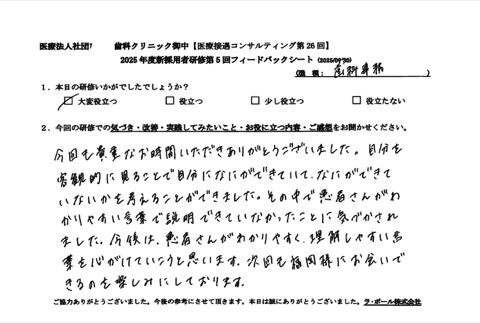 医療法人社団 歯科クリニック御中【医療接遇コンサルティング第26回】
2025年度新採用者研修第5回フィードバックシート (2025/09/30)
(職 種: 歯科事務 )
1.本日の研修いかがでしたでしょうか？
大変役立つ 役立つ 少し役立つ 役立たない
2.今回の研修での気づき・改善・実践してみたいこと・お役に立つ内容・ご感想をお聞かせください。
今回も貴重なお時間いただきありがとうございました。自分を
客観的に見ることで自分になにができていて、なにができて
いないかを考えることができました。その中で患者さんがわ
かりやすい言葉で説明できていなかったことに気づかされ
ました。今後は、患者さんがわかりやすく、理解しやすい言
葉を心がけていこうと思います。次回も福岡様にお会いで
きるのを楽しみにしております。
ご協力ありがとうございました。今後の参考にさせて頂きます。本日は誠にありがとうございました。ラ・ポール株式会社